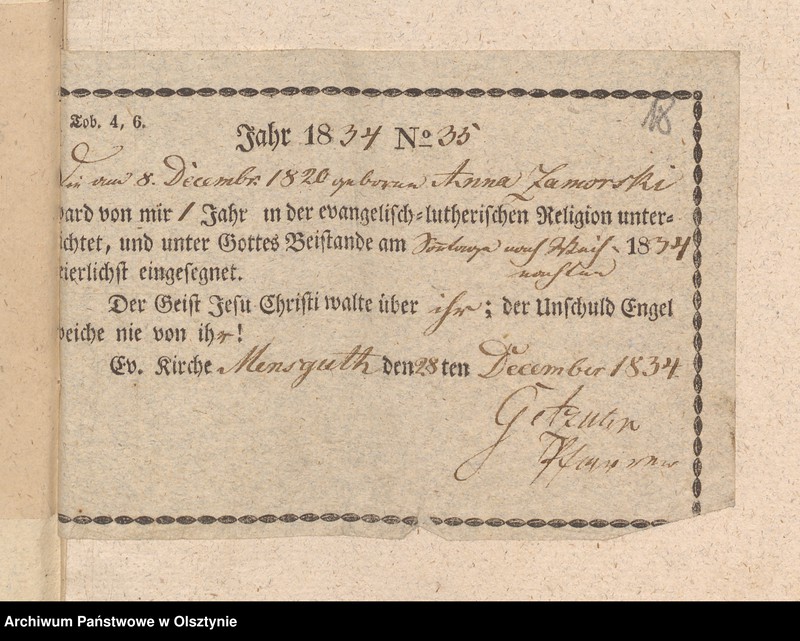 18
Tob. 4, 6.
Jahr 1834 No 35
Die am 8. Decembr. 1820 geborne Anna Zamorski
ward von mir 1 Jahr in der evangelisch=lutherischen Religion unter=
ichtet, und unter Gottes Beistande am Sonntage nach Weih- 1834
nachten
eierlichst eingesegnet.
Der Geist Jesu Christi walte über ihr; der Unschuld Engel
weiche nie von ihr!
Ev. Kirche Mensguth den 28ten December 1834
Pfarrer
Archiwum Państwowe w Olsztynie